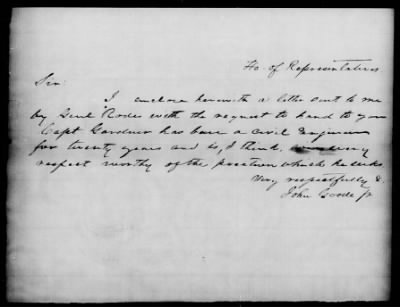 Ho. of Representatives
Sir:
I enclose herewith a letter sent to me
by Genl Rodes with the request to hand to you
Capt Gardner has been a civil Engineer
for twenty years and is, I think, every
respect worthy of the position which he seeks
Very respectfully &
John Goode jr